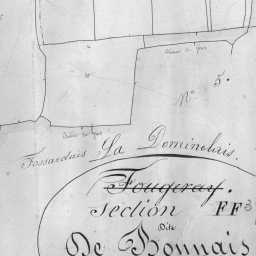 N° 5.
Fossardais La Dominelais.
Fougeray.
Section FF3
Dite
De Bonnais